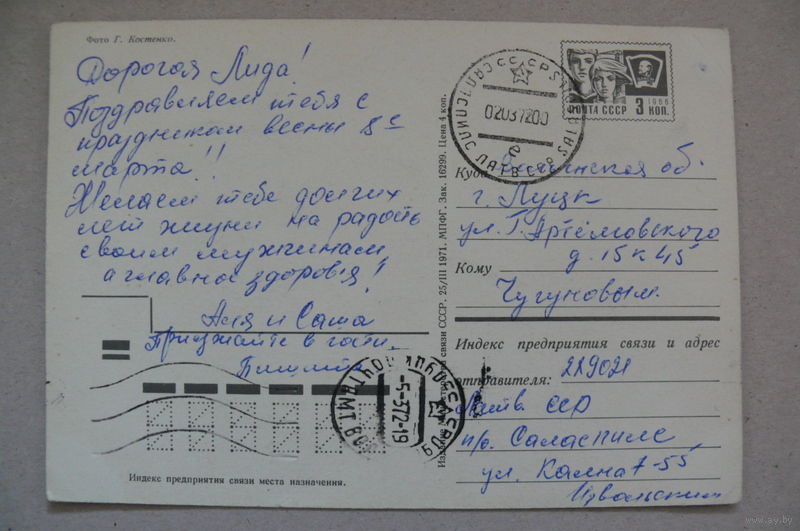 Фото Г. Костенко.
Дорогая Лида!
Поздравляем тебя с
праздником весны 8е
марта!!
Желаем тебе долгих
лет жизни на радость
своим мужчинам
а главное здоровья!
Аня и Саша
Приезжайте в гости.
Пишите
Индекс предприятия связи места назначения.
связи СССР. 25/III 1971. МПФГ. Зак. 16299. Цена 4 коп.
ПОЧТА СССР 1966 3 КОП.
ЛАТВ ССР
Куда Волынская об.
г. Луцк
ул. Артёмовского
д. 15 к 45
Кому
Чугуновым.
Индекс предприятия связи и адрес
отправителя: 229021
Латв. ССР
п/о. Саласпилс
ул. 7-55